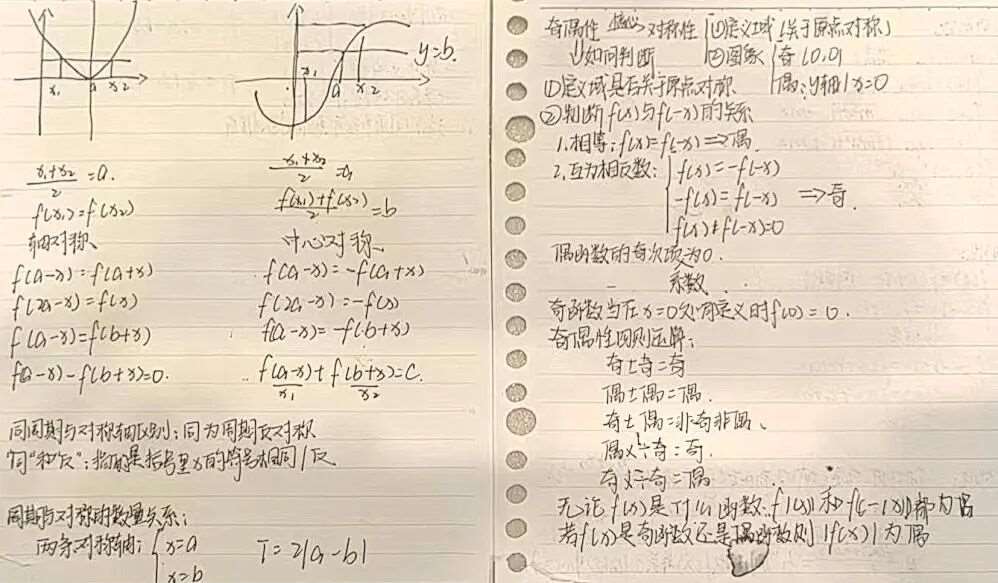 y=b.
x₁ a x₂
x₁ a x₂
(x₁+x₂)/2 = a.
f(x₁)=f(x₂)
轴对称、
f(a-x)=f(a+x)
f(2a-x)=f(x)
f(a-x)=f(b+x)
f(a-x)-f(b+x)=0.
(x₁+x₂)/2 = a
(f(x₁)+f(x₂))/2 = b
中心对称、
f(a-x)=-f(a+x)
f(2a-x)=-f(x)
f(a-x)=-f(b+x)
f(a-x)+f(b+x)=C.
x₁ x₂
周期与对称轴区别:同为周期反对称
"同"和"反":指的是括号里x的符号相同/反
周期与对称的数量关系:
两条对称轴:{x=a
x=b
T=2|a-b|
奇偶性 核心 对称性 ①定义域(关于原点对称)
↓如何判断 ②图象 奇(0,0)
①定义域是否关于原点对称 偶:y轴/x=0
②判断f(x)与f(-x)的关系
1.相等:f(x)=f(-x)⇒偶
2.互为相反数:{f(x)=-f(-x)
-f(x)=f(-x) ⇒奇.
f(x)+f(-x)=0
偶函数的奇次项为0.
系数
奇函数当在x=0处有定义时f(0)=0.
奇偶性四则运算:
奇±奇=奇
偶±偶=偶.
奇±偶=非奇非偶、
偶×÷奇=奇.
奇×÷奇=偶
无论f(x)是什么函数:f(|x|)和f(-|x|)都为偶
若f(x)是奇函数还是偶函数则|f(x)|为偶